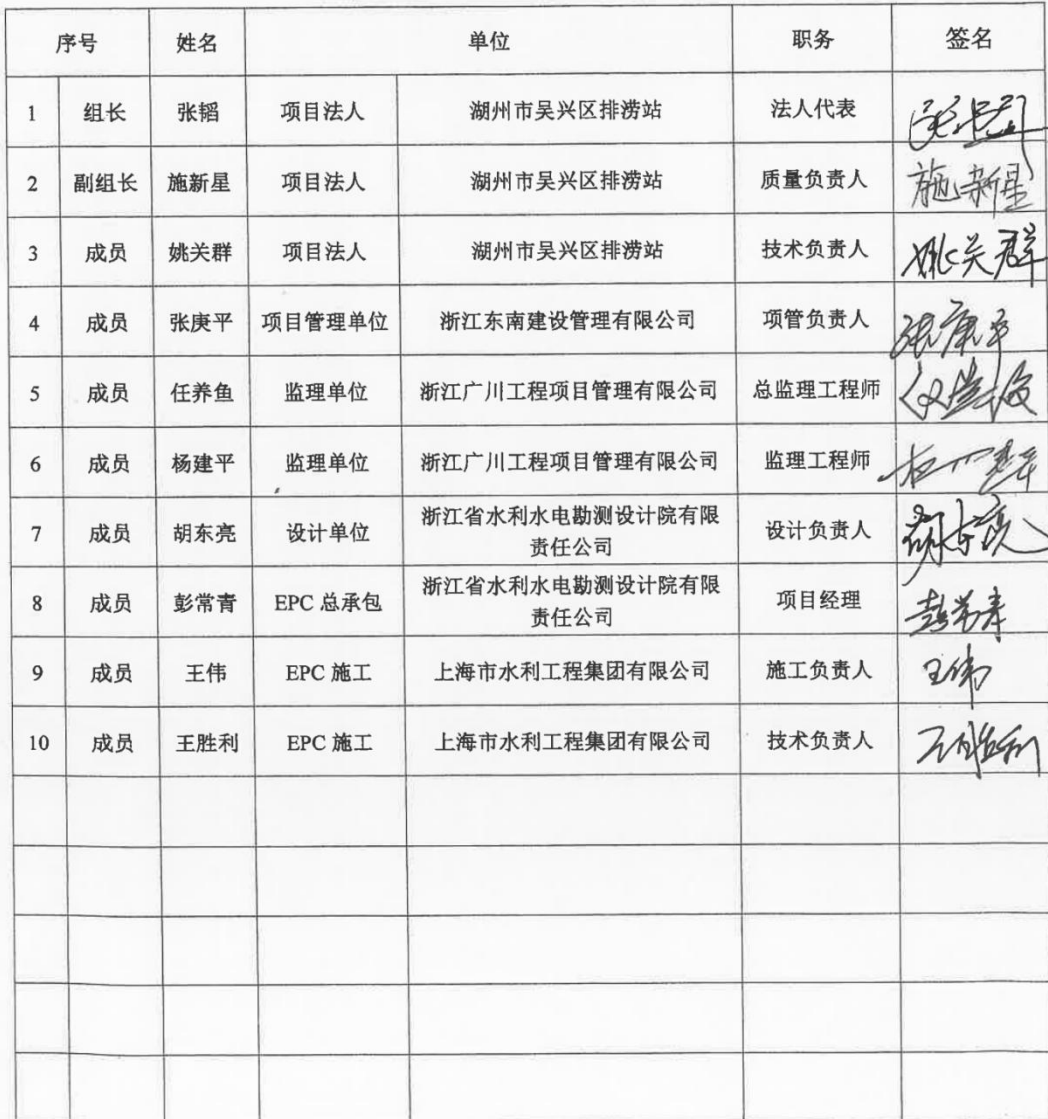 序号 姓名 单位 职务 签名
1 组长 张韬 项目法人 湖州市吴兴区排涝站 法人代表
2 副组长 施新星 项目法人 湖州市吴兴区排涝站 质量负责人 施新星
3 成员 姚关群 项目法人 湖州市吴兴区排涝站 技术负责人 姚关群
4 成员 张庚平 项目管理单位 浙江东南建设管理有限公司 项管负责人
5 成员 任养鱼 监理单位 浙江广川工程项目管理有限公司 总监理工程师
6 成员 杨建平 监理单位 浙江广川工程项目管理有限公司 监理工程师
7 成员 胡东亮 设计单位 浙江省水利水电勘测设计院有限
责任公司 设计负责人 胡东亮
8 成员 彭常青 EPC 总承包 浙江省水利水电勘测设计院有限
责任公司 项目经理 彭常青
9 成员 王伟 EPC 施工 上海市水利工程集团有限公司 施工负责人 王伟
10 成员 王胜利 EPC 施工 上海市水利工程集团有限公司 技术负责人 王胜利